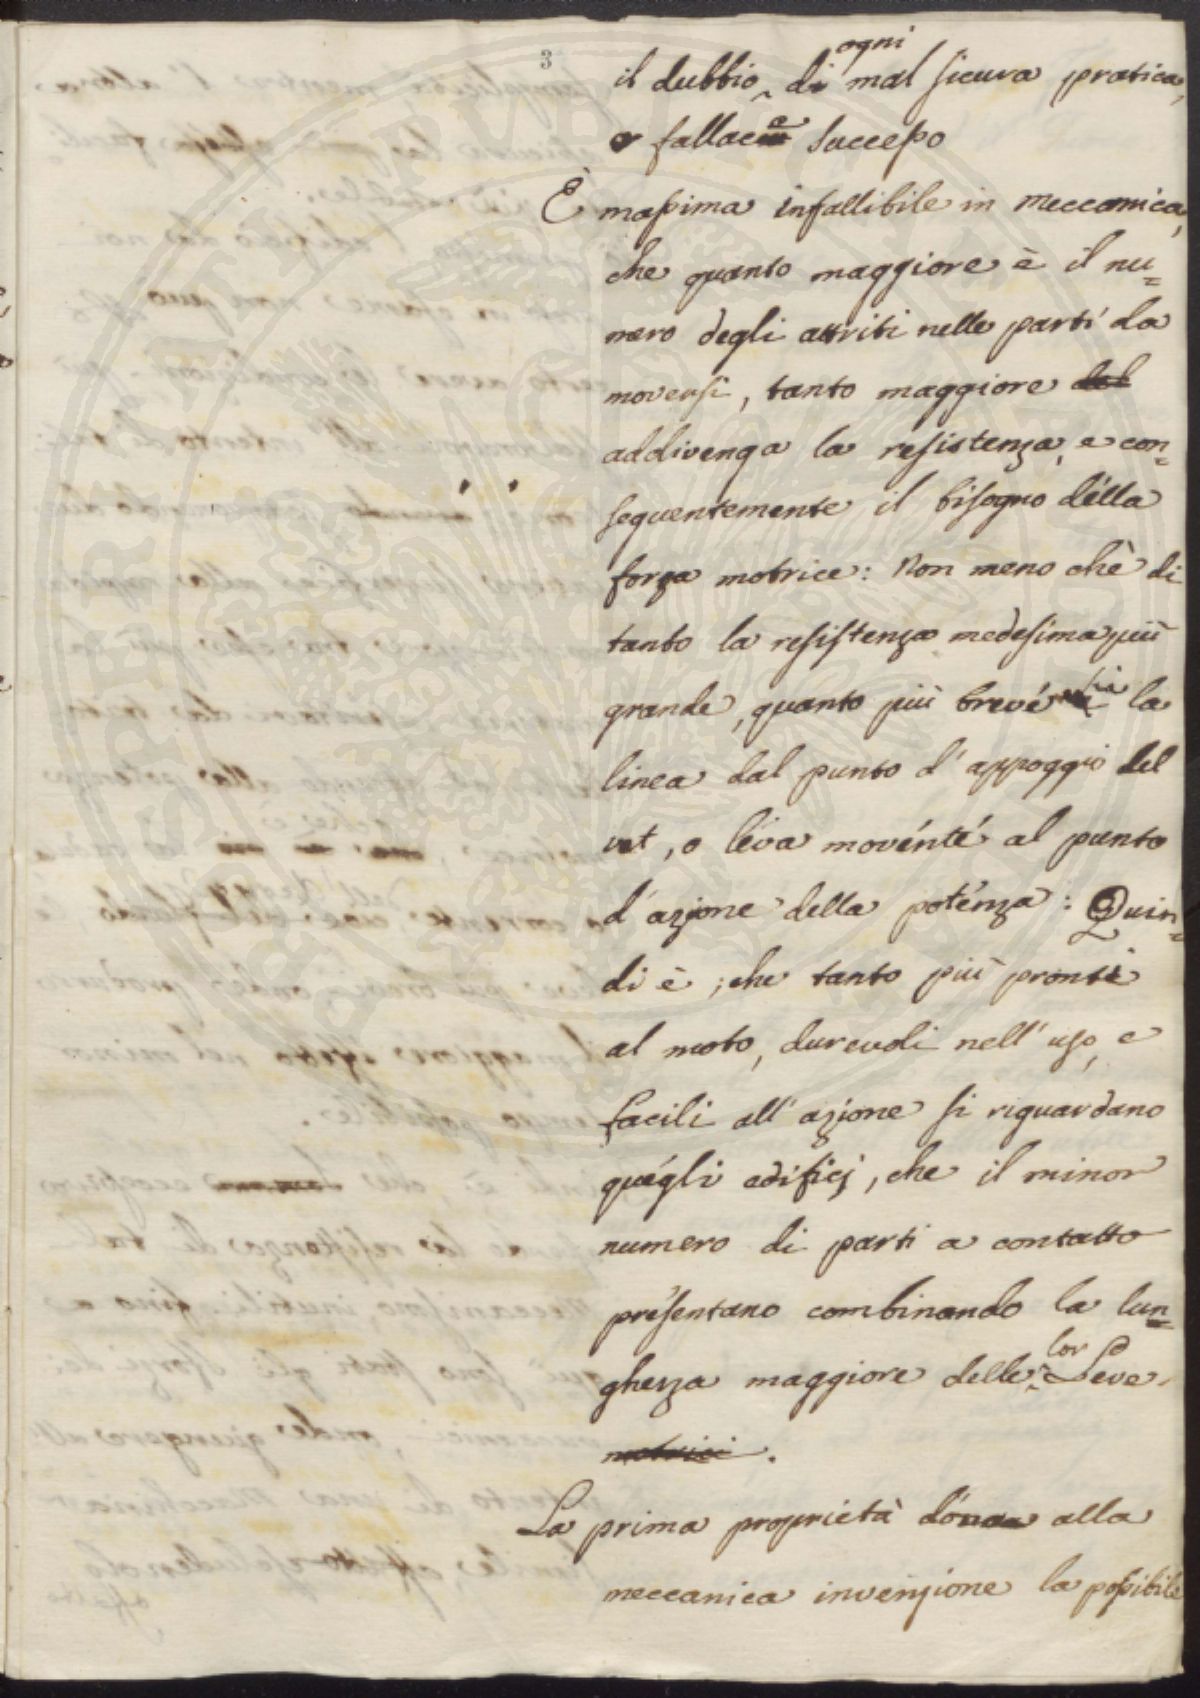 3
il dubbio di ogni mal sicura pratica,
o fallace successo
È massima infallibile in meccanica,
che quanto maggiore è il nu=
mero degli attriti nelle parti da
moversi, tanto maggiore
addivenga la resistenza, e con=
sequentemente il bisogno della
forza motrice: Non meno chè di
tanto la resistenza medesima più
grande, quanto più breve sia la
linea dal punto d'appoggio del
vet, o leva movénté al punto
d'azione della poténza: Quin=
di è, che tanto più pronti
al moto, durevoli nell'uso, e
facili all'azione si riguardano
quégli edificj, che il minor
numero di parti a contatto
présentano combinando la lun=
ghezza maggiore delle lor Leve
motrici.
La prima proprietà dona alla
meccanica invenzione la possibile